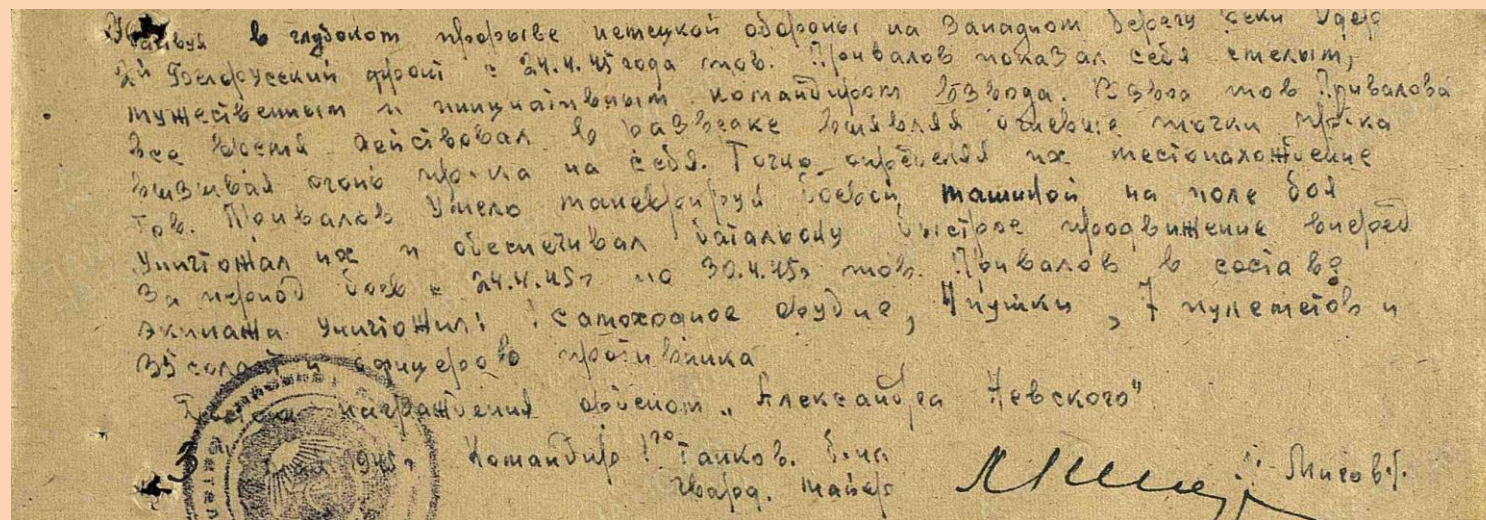 Участвуя в глубоком прорыве немецкой обороны на западном берегу реки Одер
2й Белорусский фронт с 24.4.45 года тов. Привалов показал себя смелым,
мужественным и инициативным командиром взвода. Взвод тов Привалова
все время действовал в разведке выявляя огневые точки пр-ка
вызывая огонь пр-ка на себя. Точно определяя их местонахождение
тов. Привалов умело маневрируя боевой машиной на поле боя
уничтожал их и обеспечивал батальону быстрое продвижение вперед
За период боев с 24.4.45г по 30.4.45г тов. Привалов в составе
экипажа уничтожил: 1 самоходное орудие, 4 пушки, 7 пулеметов и
35 солдат и офицеров противника
награждения орденом „Александра Невского"
1945г Командир 1го танков. б-на
гвард. майор